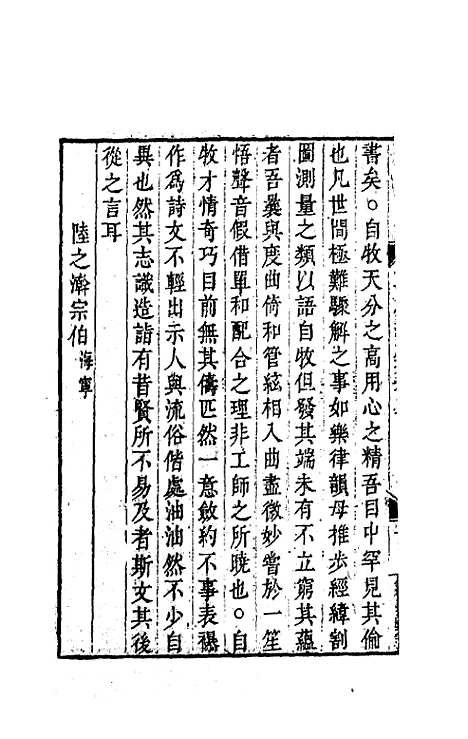 書矣。自牧天分之高用心之精吾目中罕見其倫
也凡世間極難驟解之事如樂律韻母推步經緯割
圜測量之類以語自牧但發其端未有不立窮其蘊
者吾曩與度曲倚和管絃相入曲盡微妙嘗於一笙
悟聲音假借單和配合之理非工師之所曉也。自
牧才情奇巧目前無其儔匹然一意斂約不事表襮
作爲詩文不輕出示人與流俗偕處油油然不少自
異也然其志識造詣有昔賢所不易及者斯文其後
從之言耳
陸之澣宗伯海寧